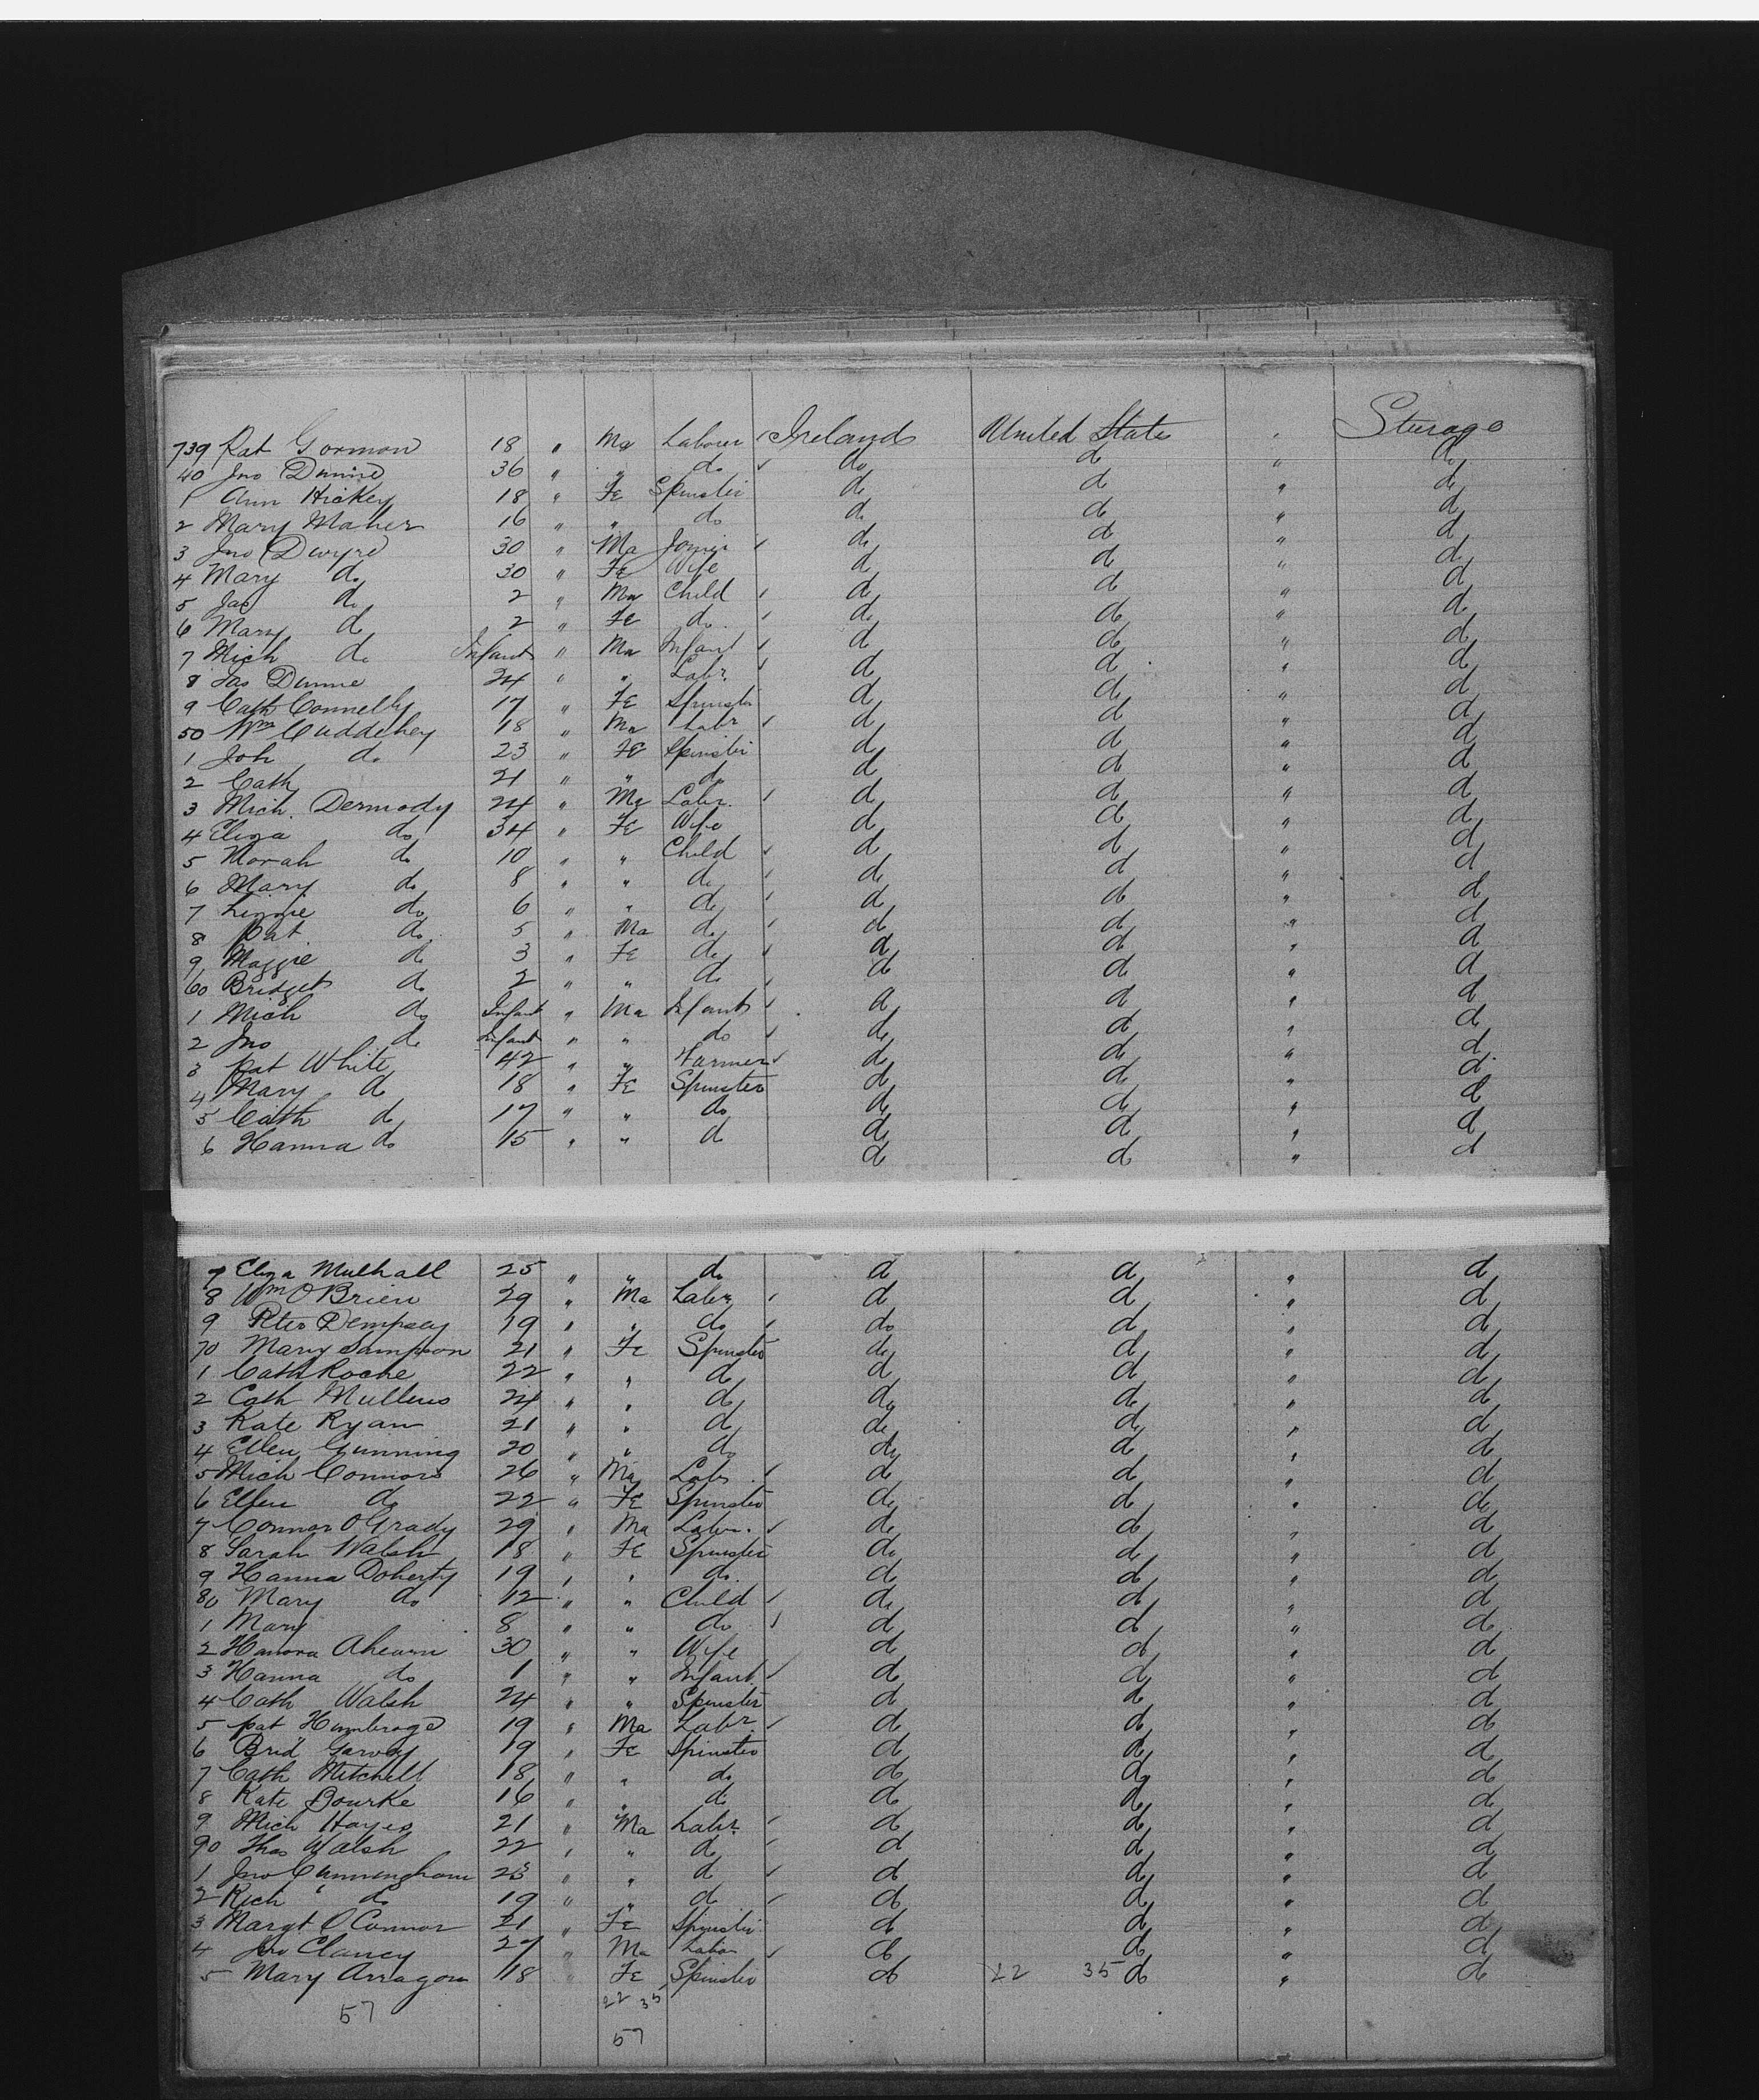 739 Pat Gorman 18 " Ma Labourer ✓ Ireland United States " Steerage
40 Jno Dunne 36 " " do ✓ do do " do
1 Ann Hickey 18 " Fe Spinster do do " do
2 Mary Maher 16 " " do do do " do
3 Jno Dwyre 30 " Ma Joiner ✓ do do " do
4 Mary do 30 " Fe Wife do do " do
5 Jas do 2 " Ma Child ✓ do do " do
6 Mary do 2 " Fe do ✓ do do " do
7 Mich do Infant " Ma Infant ✓ do do " do
8 Jas Dunne 24 " " Labr ✓ do do " do
9 Cath Connelly 17 " Fe Spinster do do " do
50 Wm Cuddehey 18 " Ma Labr ✓ do do " do
1 Joh do 23 " Fe Spinster do do " do
2 Cath 21 " " do do do " do
3 Mich. Dermody 24 " Ma Labr. ✓ do do " do
4 Eliza do 34 " Fe Wife do do " do
5 Norah do 10 " " Child ✓ do do " do
6 Mary do 8 " " do ✓ do do " do
7 Lizzie do 6 " " do ✓ do do " do
8 Pat do 5 " Ma do ✓ do do " do
9 Maggie do 3 " Fe do ✓ do do " do
60 Bridget do 2 " " do ✓ do do " do
1 Mich do Infant " Ma Infant ✓ do do " do
2 Jno do Infant " " do ✓ do do " do
3 Pat White 42 " " Farmer ✓ do do " do
4 Mary do 18 " Fe Spinster do do " do
5 Cath do 17 " " do do do " do
6 Hanna do 15 " " do do do " do
7 Eliza Mulhall 25 " " do do do " do
8 Wm O'Brien 29 " Ma Labr ✓ do do " do
9 Peter Dempsey 19 " " do ✓ do do " do
70 Mary Sampson 21 " Fe Spinster do do " do
1 Cath Roche 22 " " do do do " do
2 Cath Mullins 24 " " do do do " do
3 Kate Ryan 21 " " do do do " do
4 Ellen Gunning 20 " " do do do " do
5 Mich Connors 26 " Ma Labr ✓ do do " do
6 Ellen do 22 " Fe Spinster do do " do
7 Connor O'Grady 29 " Ma Labr. ✓ do do " do
8 Sarah Walsh 18 " Fe Spinster do do " do
9 Hanna Doherty 19 " " do. do do " do
80 Mary do 12 " " Child ✓ do do " do
1 Mary 8 " " do ✓ do do " do
2 Hanora Ahearn 30 " " Wife do do " do
3 Hanna do 1 " " Infant ✓ do do " do
4 Cath Walsh 24 " " Spinster do do " do
5 Pat 19 " Ma Labr ✓ do do " do
6 Brid Garvey 19 " Fe Spinster do do " do
7 Cath Mitchell 18 " " do do do " do
8 Kate Bourke 16 " " do do do " do
9 Mich Hayes 21 " Ma Labr. ✓ do do " do
90 Thos Walsh 22 " " do ✓ do do " do
1 Jno Cunningham 23 " " do ✓ do do " do
2 Rich " do 19 " " do ✓ do do " do
3 Margt O'Connor 21 " Fe Spinster do do " do
4 Jno Clancy 27 " Ma Labor ✓ do do " do
5 Mary Arragon 18 " Fe Spinster do 22 35 do " do
57 22 35
57